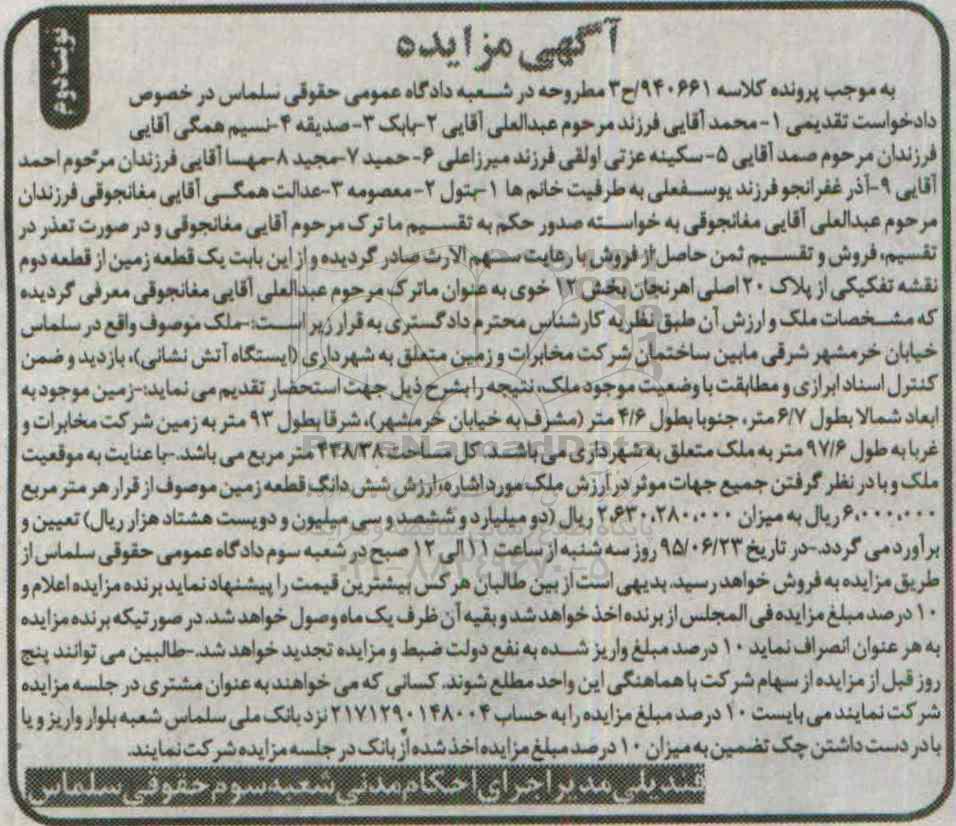 آگهی مزایده
نوبت دوم
به موجب پرونده کلاسه ۹۴۰۶۶۱/ح۳ مطروحه در شعبه دادگاه عمومی حقوقی سلماس در خصوص
دادخواست تقدیمی ۱-محمد آقایی فرزند مرحوم عبدالعلی آقایی ۲-بابک ۳-صدیقه ۴-نسیم همگی آقایی
فرزندان مرحوم صمد آقایی ۵-سکینه عزتی اولقی فرزند میرزاعلی ۶-حمید ۷-مجید ۸-مهسا آقایی فرزندان مرحوم احمد
آقایی ۹-آذر غفرانجو فرزند یوسفعلی به طرفیت خانم ها ۱-بتول ۲-معصومه ۳-عدالت همگی آقایی مغانجوقی فرزندان
مرحوم عبدالعلی آقایی مغانجوقی به خواسته صدور حکم به تقسیم ما ترک مرحوم آقایی مغانجوقی و در صورت تعذر در
تقسیم، فروش و تقسیم ثمن حاصل از فروش با رعایت سهم الارث صادر گردیده و از این بابت یک قطعه زمین از قطعه دوم
نقشه تفکیکی از پلاک ۲۰ اصلی اهرنجان بخش ۱۲ خوی به عنوان ماترک مرحوم عبدالعلی آقایی مغانجوقی معرفی گردیده
که مشخصات ملک و ارزش آن طبق نظریه کارشناس محترم دادگستری به قرار زیر است:-ملک موصوف واقع در سلماس
خیابان خرمشهر شرقی مابین ساختمان شرکت مخابرات و زمین متعلق به شهرداری (ایستگاه آتش نشانی)، بازدید و ضمن
کنترل اسناد ابرازی و مطابقت با وضعیت موجود ملک، نتیجه را بشرح ذیل جهت استحضار تقدیم می نماید:-زمین موجود به
ابعاد شمالا بطول ۶/۷ متر، جنوبا بطول ۴/۶ متر (مشرف به خیابان خرمشهر)، شرقا بطول ۹۳ متر به زمین شرکت مخابرات و
غربا به طول ۹۷/۶ متر به ملک متعلق به شهرداری می باشد. کل مساحت ۴۳۸/۳۸ متر مربع می باشد.-با عنایت به موقعیت
ملک و با در نظر گرفتن جمیع جهات موثر در ارزش ملک مورد اشاره، ارزش شش دانگ قطعه زمین موصوف از قرار هر متر مربع
۶,۰۰۰,۰۰۰ ریال به میزان ۲,۶۳۰,۲۸۰,۰۰۰ ریال (دو میلیارد و ششصد و سی میلیون و دویست هشتاد هزار ریال) تعیین و
برآورد می گردد.-در تاریخ ۹۵/۰۶/۲۳ روز سه شنبه از ساعت ۱۱ الی ۱۲ صبح در شعبه سوم دادگاه عمومی حقوقی سلماس از
طریق مزایده به فروش خواهد رسید. بدیهی است از بین طالبان هر کس بیشترین قیمت را پیشنهاد نماید برنده مزایده اعلام و
۱۰ درصد مبلغ مزایده فی المجلس از برنده اخذ خواهد شد و بقیه آن ظرف یک ماه وصول خواهد شد. در صورتیکه برنده مزایده
به هر عنوان انصراف نماید ۱۰ درصد مبلغ واریز شده به نفع دولت ضبط و مزایده تجدید خواهد شد.-طالبین می توانند پنج
روز قبل از مزایده از سهام شرکت با هماهنگی این واحد مطلع شوند. کسانی که می خواهند به عنوان مشتری در جلسه مزایده
شرکت نمایند می بایست ۱۰ درصد مبلغ مزایده را به حساب ۲۱۷۱۲۹۰۱۴۸۰۰۴ نزد بانک ملی سلماس شعبه بلوار واریز و یا
با در دست داشتن چک تضمین به میزان ۱۰ درصد مبلغ مزایده اخذ شده از بانک در جلسه مزایده شرکت نمایند.
قندیلی مدیر اجرای احکام مدنی شعبه سوم حقوقی سلماس
ParsNamadData